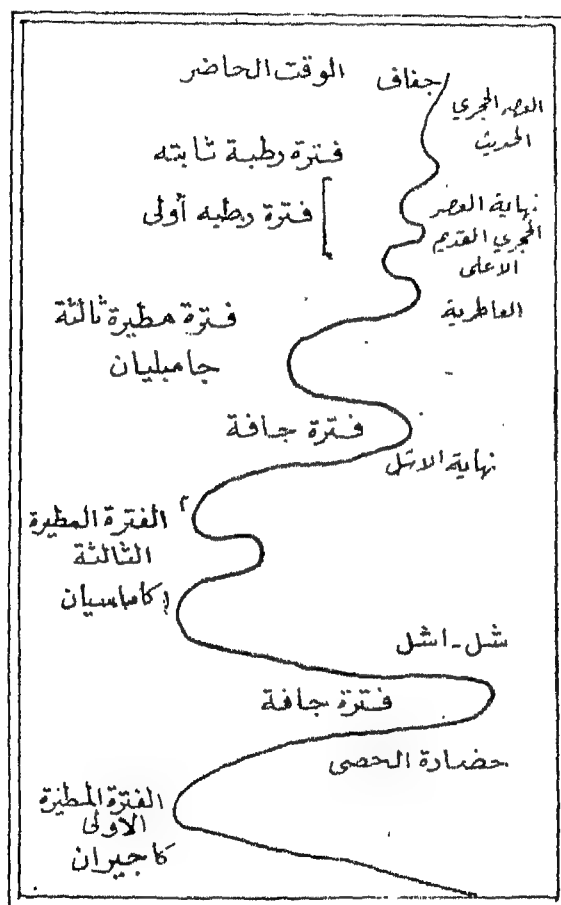 الوقت الحاضر
جفاف
العصر الحجري
الحديث
فترة رطبة ثابته
فترة رطبه أولى
نهاية العصر
الحجري القديم
الاعلى
العاطرية
فترة مطيرة ثالثة
جامبليان
فترة جافة
نهاية الاشل
الفترة المطيرة
الثالثة
كاماسيان
شل - اشل
فترة جافة
حضارة الحصى
الفترة المطيرة
الاولى
كاجيران